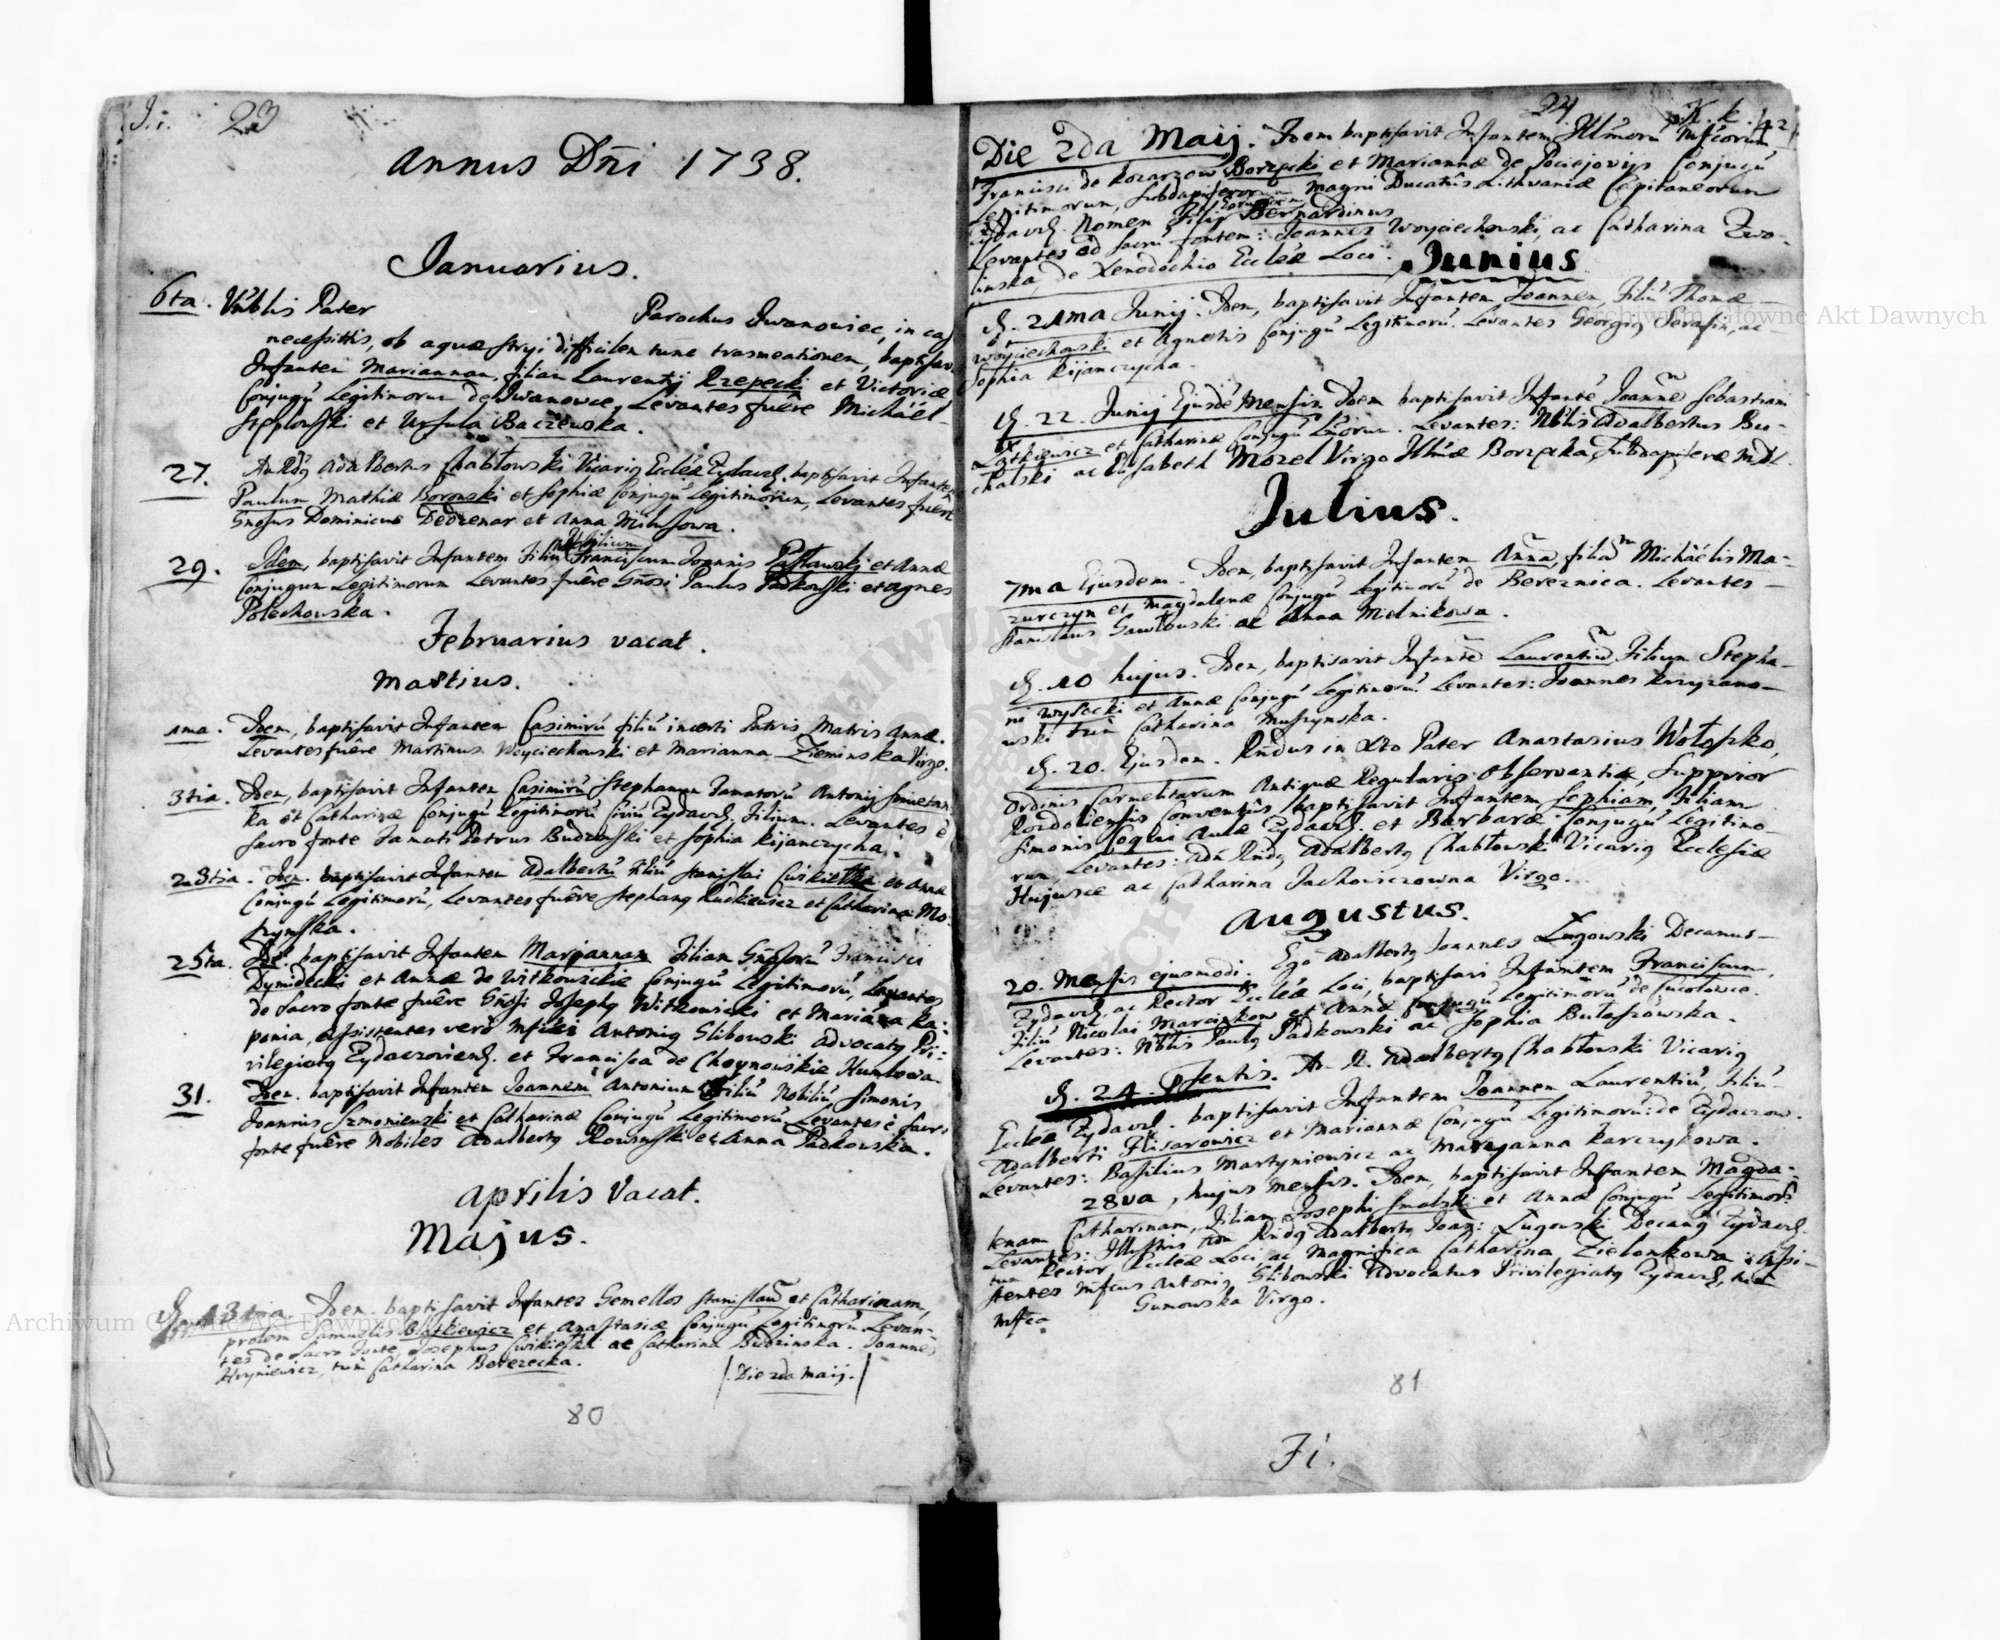 J.i. 23
Annus Dñi 1738.
Januarius.
6ta. Vñblis Pater Parochus Iwanoviec, in casu
necessittis, ob aquæ stryi difficilem tunc trasmeationem, baptisav.
Infantem Mariannam, filiam Laurentij Rzepecki et Victoriæ
Conjugũ Legitimorum de Iwanowce, Levantes fuêre Michäel
et Ursula Baczewska.
27. Adalbertus Chabłowski Vicarig Eccleæ Zydacz. baptisavit Infantem
Paulum Mathiæ Boronski et Sophiæ Conjugũ Legitimorum, Levantes fuêre
Gnosus Dominicus Dedzenar et Anna Milusowa.
29. Idem, baptisavit Infantem Filiũ Nobilium Franciscum Joannis Pasławski et Annæ
Conjugum Legitimorum Levantes fuêre Gnosi Paulus Padkowski et Agnes
Polechowska.
Februarius vacat.
Martius.
1ma. Idem, baptisavit Infantem Casimirũ filiũ incerti Patris Matris Annæ.
Levantes fuêre Martinus Woyciechowski et Marianna Zieminska Virgo.
3tia. Idem, baptisavit Infantem Casimirũ Stephanum Famatorũ Antonij
ka et Catharinæ Conjugũ Legitimorũ Civiũ Zydacz. Filium. Levantes è
sacro fonte Famati Petrus Budzinski et Sophia Kijanczycha.
23tia. Idem. baptisavit Infantem Adalbertũ Filiũ Stanislai et Annæ
Conjugũ Legitimorũ, Levantes fuêre Stephang Rudkiewicz et Catharina Mo-
szynska.
25ta. baptisavit Infantem Mariannam Filiam Gnosorũ Francisci
Dymidecki et Annæ de Witkowickie Conjugũ Legitimorũ, Levantes
de Sacro fonte fuêre Gnosi Josephg Witkowicki et Marianna Ka-
penia, assistentes verò Mfici Antonig Glibowski Advocatg Pri-
vilegiatg Zydaczoviens. et Francisca de Choynowskie
31. Idem. baptisavit Infantem Joannem Antonium Filiũ Nobiliũ Simonis
Joannis Szmoniewski et Catharinæ Conjugũ Legitimorũ Levantes è sacr.
fonte fuêre Nobiles Adalbertg et Anna Padkowska.
Aprilis Vacat.
Majus.
D. 13tia Idem. baptisavit Infantes Gemellos Stanislaũ et Catharinam,
prolem Samuelis et Anastasiæ Conjugũ Legitimorũ Levan-
tes de Sacro Fonte, Josephus ac Catharina Budzinska. Joannes
Hryniewicz, tum Catharina Berezecka.
/. Die 2da Maij. /
80
24 K.k.
Die 2da Maij. Idem baptisavit Infantem Illmorũ Mficorum
Francisci de Kozarzow Borzęcki et Mariannæ de Pociejovijs Conjugũ
Legitimorum, Subdapiferorum Magni Ducatûs Lithvaniæ Capitaneorum
Zydacz. Nomen Filij Bernardinus
Levantes ad sacrũ fontem: Joannes Woyciechowski, ac Catharina Zwo-
linska, de Xenodochio Eccleæ Loci.
Junius
D. 21ma Junij. Idem, baptisavit Infantem Joannem, Filiũ Thomæ
Woyciechowski et Agnetis Conjugũ Legitimorũ. Levantes Georgig Serafin, ac
Sophia Kijanczycha.
D. 22. Junij Ejusdẽ Mensis. Idem baptisavit Infantẽ Joannẽ Sebastiani
et Catharinæ Conjugũ Lmorum. Levantes: Nblis Adalbertus Bu-
chalski ac Elisabeth Mozel Virgo Illmæ Borzęcka, Subdapiferæ M.D.L.
Julius.
7ma Ejusdem. Idem, baptisavit Infantem Annã, filiã Michäelis Ma-
zurczyn et Magdalenæ Conjugũ Legitimorũ de Bereznica. Levantes
Stanislaus Gawłowski ac Anna Mielnikowa.
D. 10 hujus. Idem, baptisavit Infantẽ Laurentiũ Filium Stepha-
ni Wysocki et Annæ Conjugũ Legitimorũ. Levantes: Joannes Krzyzano-
wski tum Catharina Muszynska.
D. 20. Ejusdem. Rñdus in Xto Pater Anastasius Wołoszko,
Ordinis Carmelitarum Antiquæ Regularis Observantiæ, Supprior
Rozdoliensis Conventûs baptisavit Infantem Sophiam, Filiam
Simonis Coqui Aulæ Zydacz. et Barbaræ Conjugũ Legitimo-
rum, Levantes: Adm Rndg Adalbertg Chabłowski Vicarig Ecclesiæ
Hujusce ac Catharina Jachowiczowna Virgo.
Augustus.
20. Mensis ejusmodi. Ego Adalbertg Joannes Ługowski Decanus
Zydacz, ac Rector Eccleæ Loci, baptisavi Infantem Franciscum,
Filiũ Nicolai Marcinkow et Annæ Conjugũ Legitimorũ de Cucołowce.
Levantes: Nblis Paulg Padkowski ac Sophia Butaszowska.
D. 24. Psentis. A. R. Adalbertg Chabłowski Vicarig
Eccleæ Zydacz. baptisavit Infantem Joannem Laurentiũ, Filiũ
Adalberti Flisarowicz et Mariannæ Conjugũ Legitimorũ: de Zydaczow.
Levantes: Basilius Martyniewicz ac Maryanna Karczykowa.
28va, hujus Mensis. Idem, baptisavit Infantem Magda-
lenam Catharinam, Filiam Josephi Smolski et Annæ Conjugũ Legitimorũ
Levantes: Illustris Adm Rndg Adalbertg Joan: Ługowski Decang Zydacz.
tum Rector Eccleæ Loci, ac Magnifica Catharina Zielonkowa: Assi-
stentes Mficus Antonig Glibowski Advocatus Privilegiatg Zydacz, tum
Mfca Gumowska Virgo.
81
Ji.
Archiwum Główne Akt Dawnych
Archiwum Główne Akt Dawnych